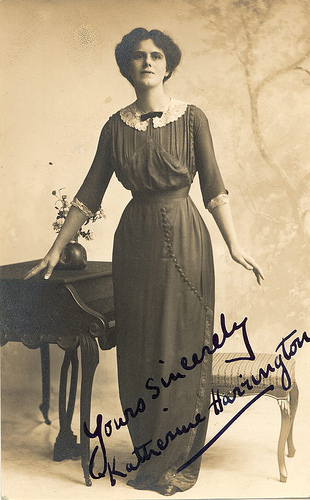 Yours Sincerely
Katherine Harrington